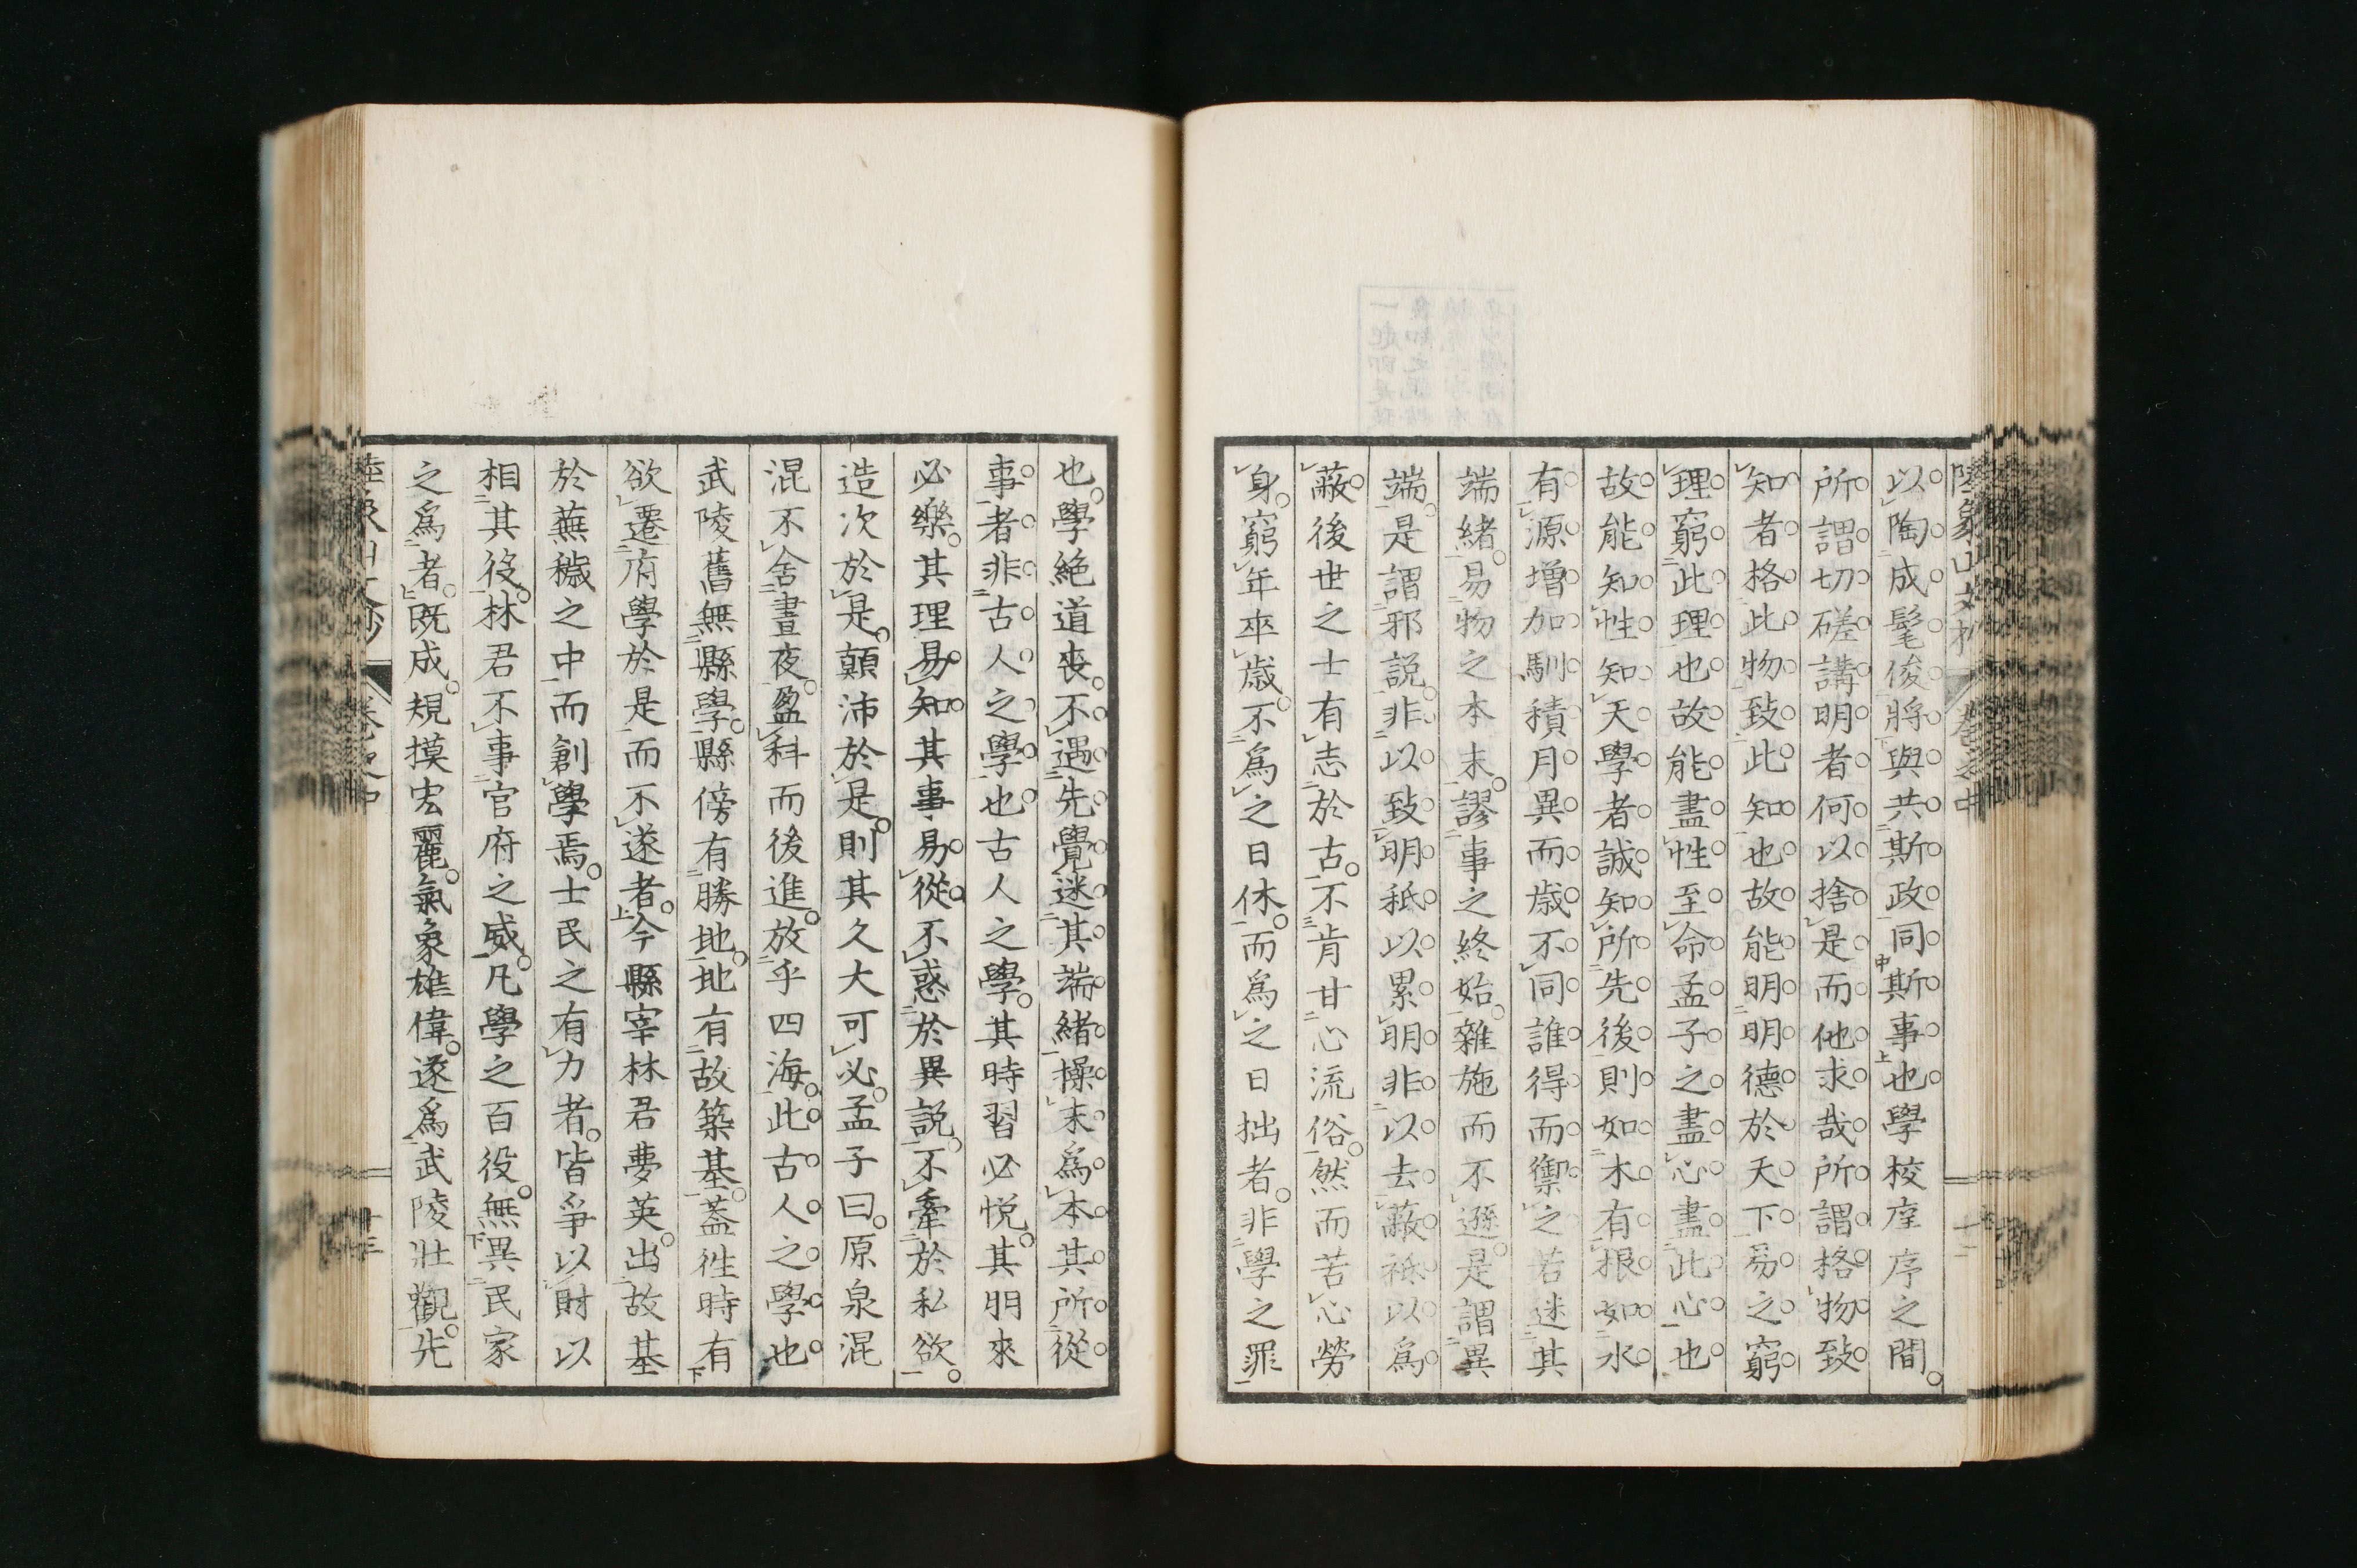 陸象山文抄 卷之中
以陶成髦俊將與共斯政同斯事也學校庠序之間
所謂切磋講明者何以捨是而他求哉所謂格物致
知者格此物致此知也故能明明德於天下易之窮
理窮此理也故能盡性至命孟子之盡心盡此心也
故能知性知天學者誠知所先後則如木有根如水
有源增加馴積月異而歳不同誰得而禦之若迷其
端緒易物之本末謬事之終始雜施而不遜是謂異
端是謂邪説非以致明秖以累明非以去蔽祗以爲
蔽後世之士有志於古不肯甘心流俗然而苦心勞
身窮年卒歳不爲之日休而爲之日拙者非學之罪
也學絶道喪不遇先覺迷其端緒操末爲本其所從
事者非古人之學也古人之學其時習必悦其朋來
必樂其理易知其事易從不惑於異説不牽於私欲
造次於是顛沛於是則其久大可必孟子曰原泉混
混不舍晝夜盈科而後進放乎四海此古人之學也
武陵舊無縣學縣傍有勝地地有故築基蓋徃時有
欲遷府學於是而不遂者今縣宰林君夢英出故基
於蕪穢之中而創學焉士民之有力者皆爭以財以
相其役林君不事官府之威凡學之百役無異民家
之爲者既成規摸宏麗氣象雄偉遂爲武陵壯觀先